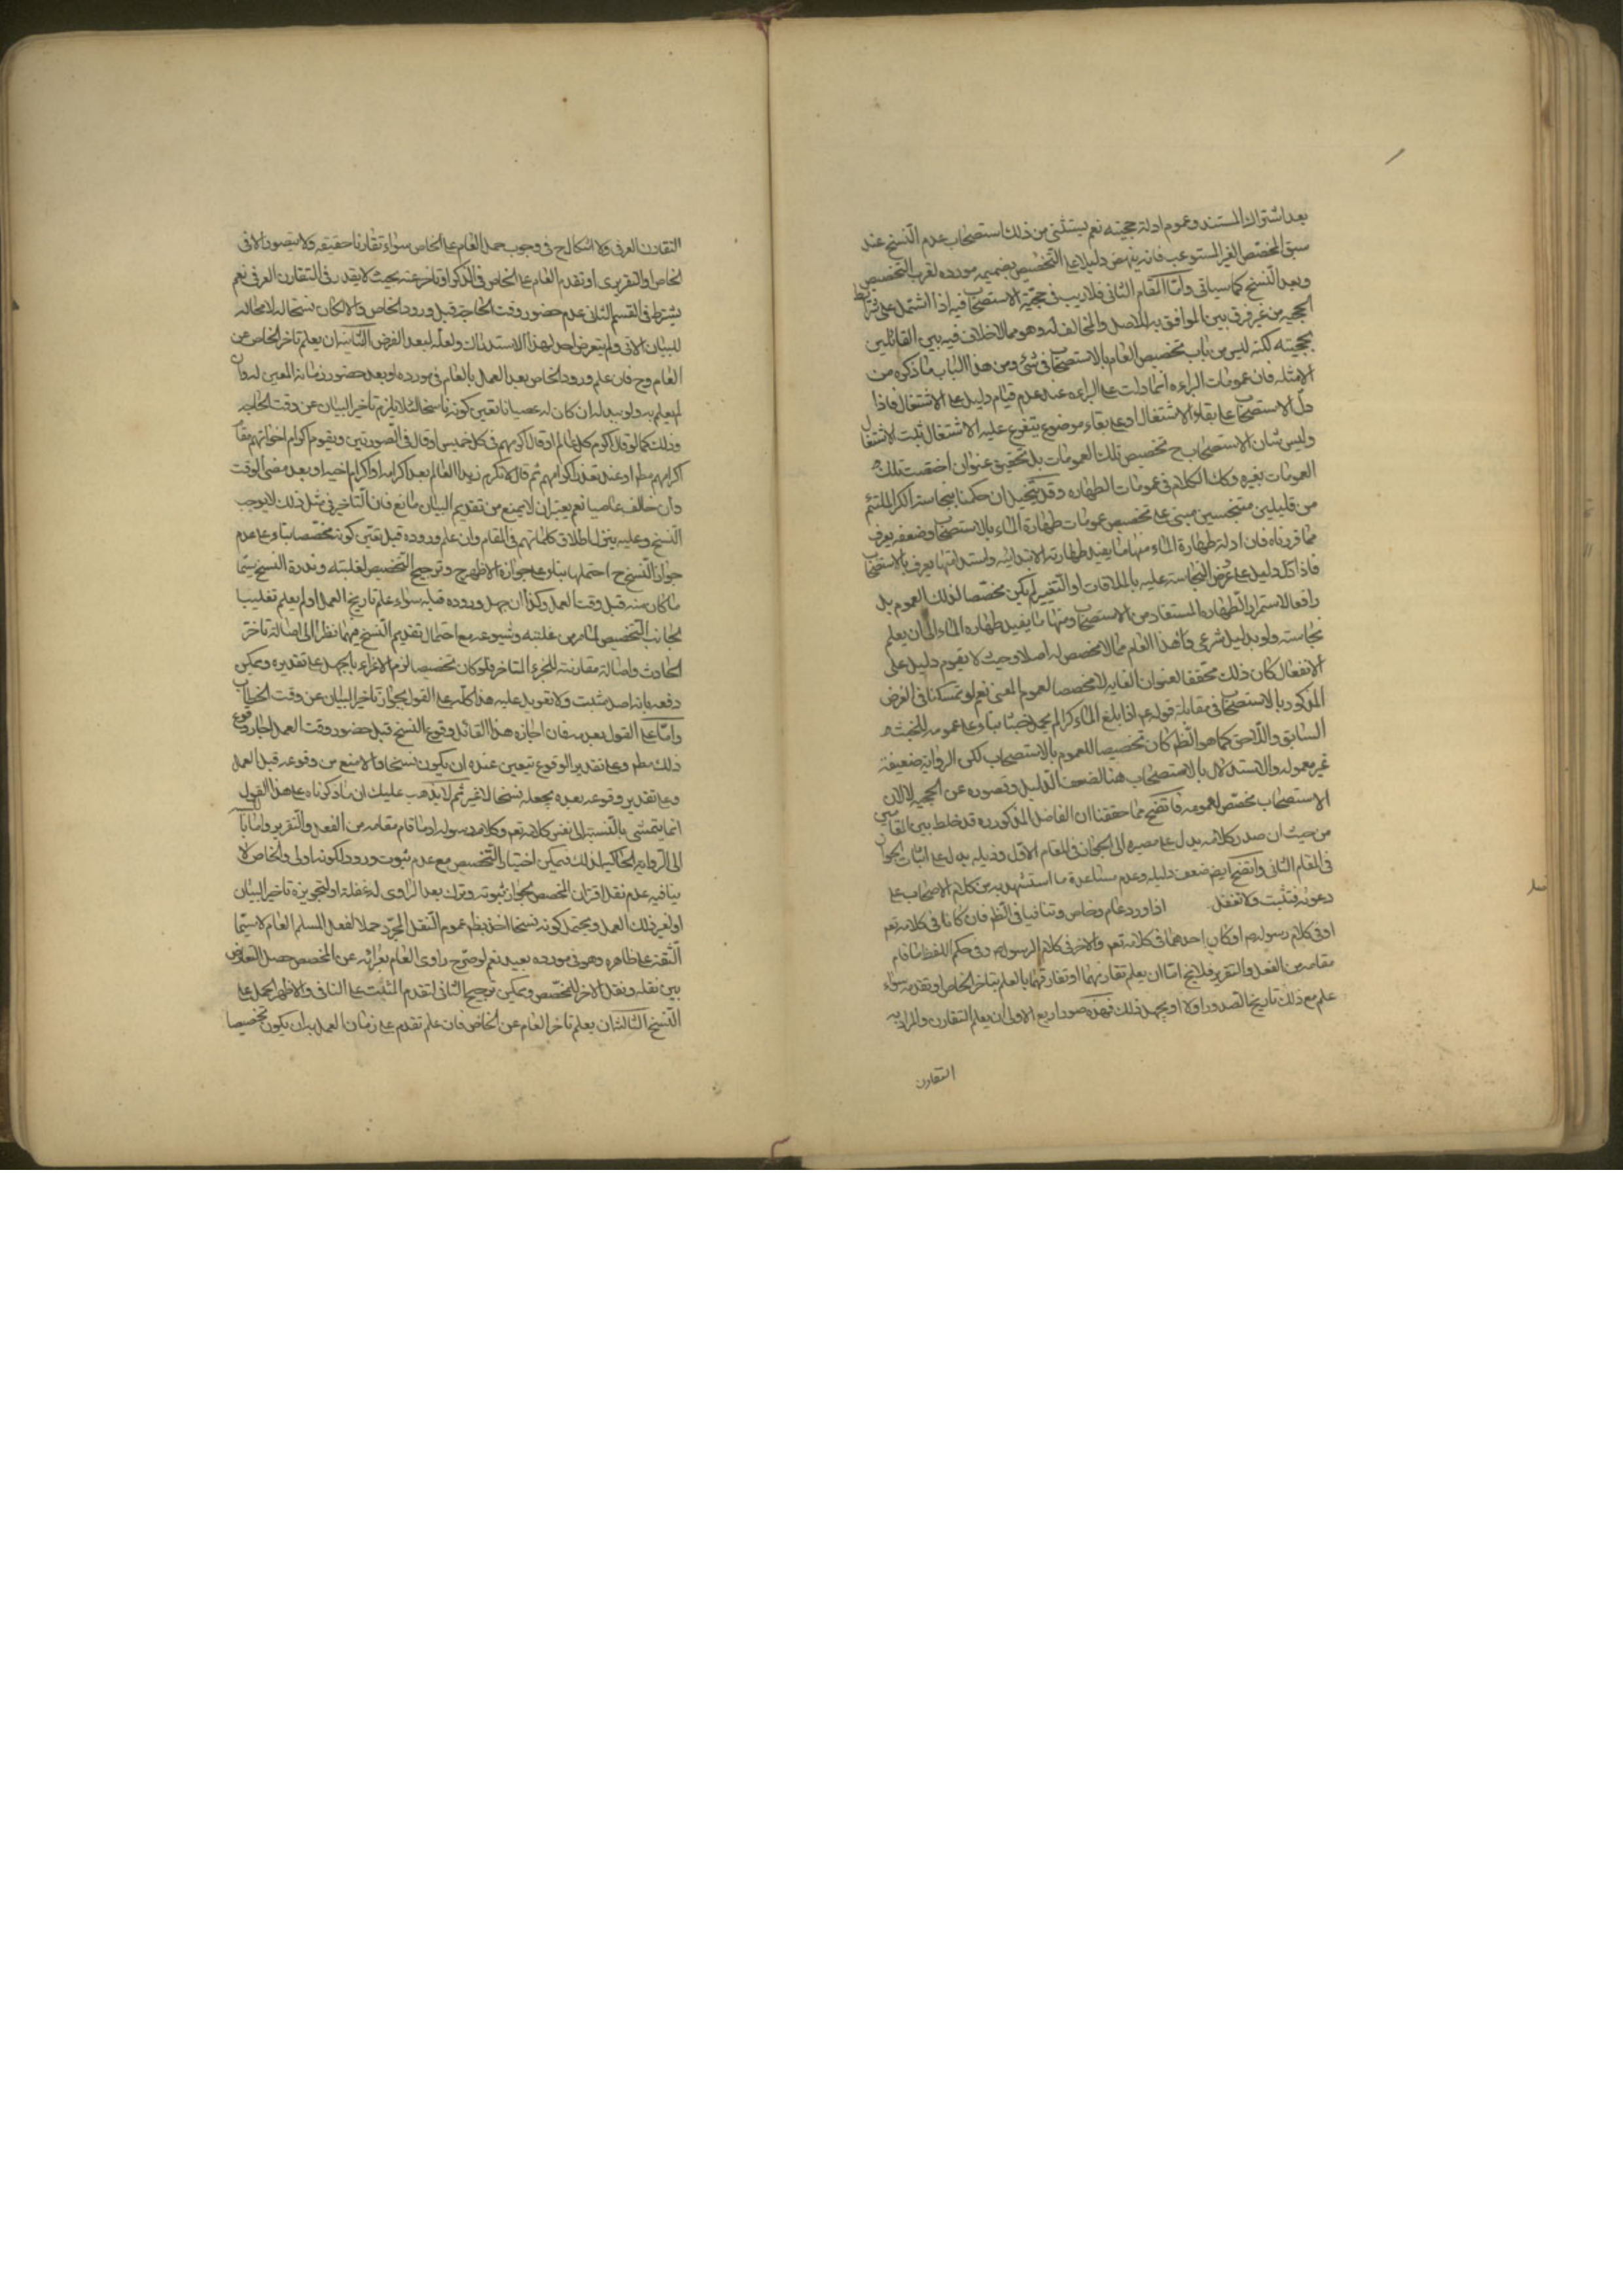 بعد اشتراك المستند وعموم ادلة حجيته نعم يستثنى من ذلك استصحاب عدم النسخ عند
سبق المخصص الغير المستوعب فانه ينهض دليلا على التخصيص بضميمه مورده لقرب التخصيص
وبعد النسخ كما سياتى وامّا المقام الثانى فلا ريب فى حجيّة الاستصحاب فيه اذا اشتمل على شرائط
الحجيه من غير فرق بين الموافق به للاصل والمخالف له وهو مما لا خلاف فيه بين القائلين
بحجيته لكنه ليس من باب تخصيص العام بالاستصحاب فى شئ ومن هذا الباب ما ذكره من
الامثله فان عمومات البراءه انما دلت على البراءه عند عدم قيام دليل على الاشتغال فاذا
دل الاستصحاب على بقاء الاشتغال او على بقاء موضوع يتفرع عليه الاشتغال ثبت الاشتغال
وليس شان الاستصحاب ح تخصيص تلك العمومات بل تحقيق عنوان اختصت تلك
العمومات بغيره وكك الكلام فى عمومات الطهاره وقد يتخيل ان حكمنا بنجاسة الكر الملتئم
من قليلين متنجسين مبنى على تخصيص عمومات طهارة الماء بالاستصحاب وضعفه يعرف
مما قررناه فان ادلة طهارة الماء منها ما يفيد طهارته الابتدائيه واستدامتها يعرف بالاستصحاب
فاذا دل دليل على عرض النجاسة عليه بالملاقات او التغيير لم يكن مخصصا لذلك العموم بل
رافعا لاستمرار الطهاره المستفاد من الاستصحاب ومنها ما يفيد طهاره الماء الى ان يعلم
نجاسته ولو بدليل شرعى وهذا العام مما لا مخصص له اصلا وحيث لا يقوم دليل على
الانفعال كان ذلك محققا لعنوان الغايه لا مخصصا لعموم المغيى نعم لو تمسكنا فى الفرض
المذكور بالاستصحاب فى مقابلة قوله ع اذا بلغ الماء كرا لم يحمل خبثا بناء على عمومه للخبث
السابق واللاحق كما هو الظ كان تخصيصا للعموم بالاستصحاب لكن الرواية ضعيفة
غير معموله والاستدلال بالاستصحاب هنا لضعف الدليل وقصوره عن الحجيه لا لان
الاستصحاب مخصص لعمومه فاتضح مما حققنا ان الفاضل المذكور ره قد خلط بين المقامين
من حيث ان صدر كلامه يدل على مصيره الى الجواز فى المقام الاول وذيله يدل على اثبات الجواز
فى المقام الثانى واتضح ايضا ضعف دليله وعدم مساعدة ما استشهد به من كلام الاصحاب على
دعوته فتثبت ولا تغفل اذا ورد عام وخاص وتنافيا فى الظ فان كانا فى كلامه تعم
او فى كلام رسوله ص او كان احدهما فى كلامه تعم والاخر فى كلام الرسول ص وفى حكم اللفظ ما قام
مقامه من الفعل والتقرير فلا يخ امّا ان يعلم تقارنهما او تفارقهما بالعلم بتاخر الخاص او تقدمه سواء
علم مع ذلك تاريخ الصدور اولا او يجهل ذلك فهذه صور اربع الاولى ان يعلم التقارن والمراد به
التقارن
التقارن العرفى ولا اشكال ح فى وجوب حمل العام على الخاص سواء تقارنا حقيقه ولا يتصور الا فى
الخاص والتقريرى او تقدم العام على الخاص فى الذكر او تاخر عنه بحيث لا يقدر فى التقارن العرفى نعم
يشترط فى القسم الثانى عدم حضور وقت الحاجة قبل ورود الخاص والا لكان نسخا لا محاله
للبيان الاتى ولم يتعرض احد لهذا الاستدراك ولعله لبعد الفرض الثانية ان يعلم تاخر الخاص عن
العام وح فان علم ورود الخاص بعد العمل بالعام فى مورده او بعد حضور زمانه المعين له وان
لم يعلم به ولو ببدله ان كان له عصيانا تعين كونه ناسخا لئلا يلزم تاخير البيان عن وقت الحاجه
وذلك كما لو قال اكرم كل عالم او قال اكرمهم فى كل خميس او قال فى الصورتين ويقوم اكرام اخوانهم مقام
اكرامهم مطم او عند تعذر اكرامهم ثم قال لا تكرم زيدا العالم بعد اكرامه او اكرام اخيه او بعد مضى الوقت
وان خالف عاصيا نعم يعتبر ان لا يمنع من تقديم البيان مانع فان التاخير فى مثل ذلك لا يوجب
النسخ وعليه ينزل اطلاق كلماتهم فى المقام وان علم وروده قبل تعين كونه مخصصا بناء على عدم
جواز النسخ ح احتملها بناء على جوازه الاظهر ح وترجيح التخصيص لغلبته وندرة النسخ سيما
ما كان منه قبل وقت العمل وكذا ان جهل وروده قبله سواء علم تاريخ العمل او لم يعلم تغليبا
لجانب التخصيص لما مر من غلبته وشيوعه مع احتمال تقديم النسخ فيهما نظرا الى اصالة تاخر
الحادث واصالة مقارنته للجزء المتاخر فلو كان تخصيصا لزم الاغراء بالجهل على تقديره ويمكن
دفعه بانه اصل مثبت ولا تعويل عليه هذا كله على القول بجواز تاخير البيان عن وقت الخطاب
وامّا على القول بعدمه فان اجازه هذا القائل وقوع النسخ قبل حضور وقت العمل اجاز وقوع
ذلك مطم وعلى تقدير الوقوع تيعين عنده ان يكون نسخا والا منع من وقوعه قبل العمل
وعلى تقدير وقوعه بعده يجعله نسخا لا غير ثم لا يذهب عليك ان ما ذكرناه على هذا القول
انما يتمشى بالنسبة الى نفس كلامه تعم وكلام رسوله او ما قام مقامه من الفعل والتقرير وامّا بالنسبة
الى الرواية الحاكية لذلك فيمكن اختيار التخصيص مع عدم ثبوت ورود لكونه اولى والخاص لا
ينافيه عدم نقل اقتران المخصص لجواز ثبوته وترك بعد الراوى له غفلة او لتجويزه تاخير البيان
او لغير ذلك العمل ويحتمل كونه نسخا اخذ بظ عموم النقل المجرد حملا لفعل المسلم العام لا سيما
الثقة على ظاهره وهو فى مورده بعيد نعم لو صرح راوى العام بعرائه عن المخصص حصل التعارض
بين نقله ونقل الاخر للمخصص ويمكن ترجيح الثانى لتقدم المثبت على النافى والاظهر الحمل على
النسخ الثالثة ان يعلم تاخر العام عن الخاص فان علم تقدم على زمان العمل به ان يكون تخصيصا